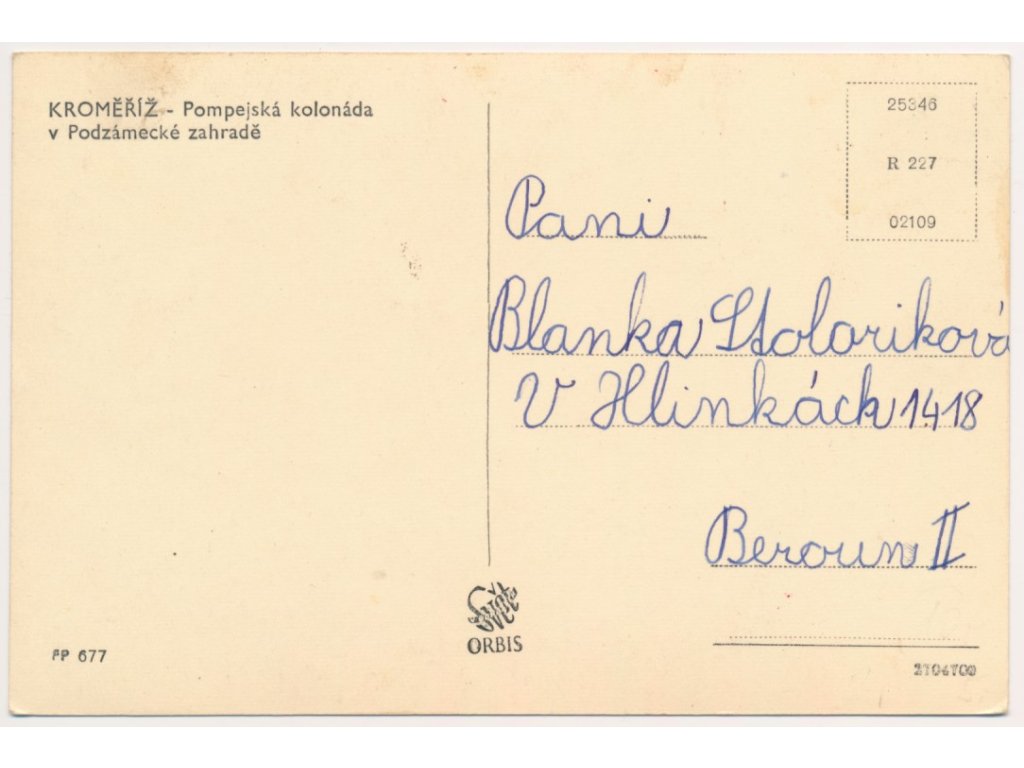 KROMĚŘÍŽ - Pompejská kolonáda
v Podzámecké zahradě
25346
R 227
02109
Pani
Blanka Stolariková
V Hlinkách 1418
Beroun II
ORBIS
FP 677